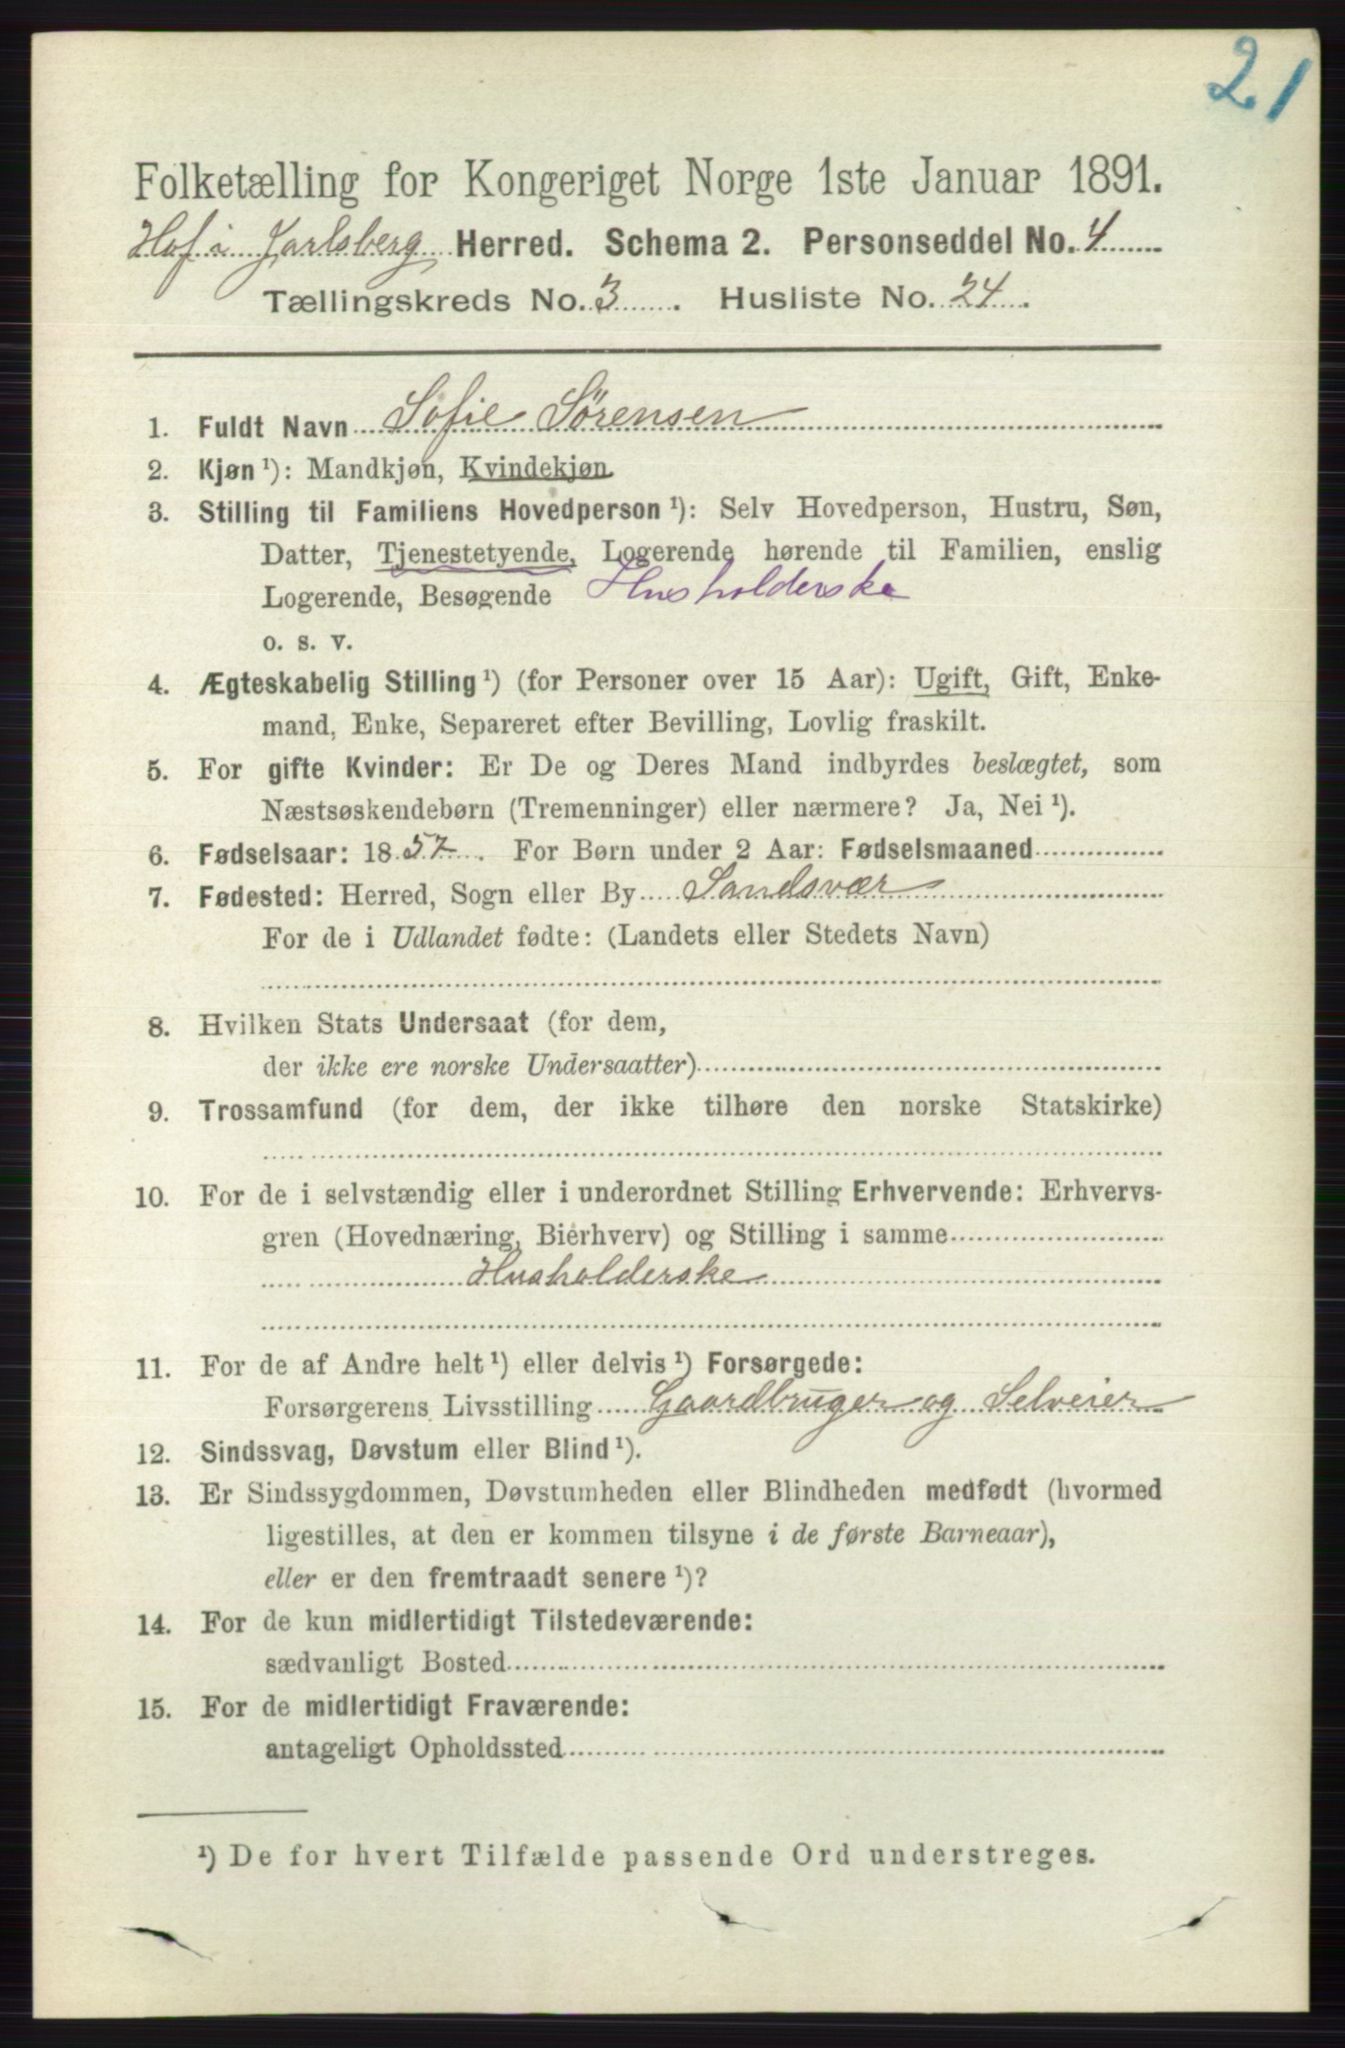 21
Folketælling for Kongeriget Norge 1ste Januar 1891.
Hof i Jarlsberg Herred. Schema 2. Personseddel No. 4
Tællingskreds No. 3. Husliste No. 24.
1. Fuldt Navn Sofie Sørensen
2. Kjøn ¹): Mandkjøn, Kvindekjøn
3. Stilling til Familiens Hovedperson ¹): Selv Hovedperson, Hustru, Søn,
Datter, Tjenestetyende, Logerende hørende til Familien, enslig
Logerende, Besøgende Husholderske
o. s. v.
4. Ægteskabelig Stilling ¹) (for Personer over 15 Aar): Ugift, Gift, Enke-
mand, Enke, Separeret efter Bevilling, Lovlig fraskilt.
5. For gifte Kvinder: Er De og Deres Mand indbyrdes beslægtet, som
Næstsøskendebørn (Tremenninger) eller nærmere? Ja, Nei ¹).
6. Fødselsaar: 1857. For Børn under 2 Aar: Fødselsmaaned
7. Fødested: Herred, Sogn eller By Sandsvær
For de i Udlandet fødte: (Landets eller Stedets Navn)
8. Hvilken Stats Undersaat (for dem,
der ikke ere norske Undersaatter)
9. Trossamfund (for dem, der ikke tilhøre den norske Statskirke)
10. For de i selvstændig eller i underordnet Stilling Erhvervende: Erhvervs-
gren (Hovednæring, Bierhverv) og Stilling i samme
Husholderske
11. For de af Andre helt ¹) eller delvis ¹) Forsørgede:
Forsørgerens Livsstilling Gaardbruger og Selveier
12. Sindssvag, Døvstum eller Blind ¹).
13. Er Sindssygdommen, Døvstumheden eller Blindheden medfødt (hvormed
ligestilles, at den er kommen tilsyne i de første Barneaar),
eller er den fremtraadt senere ¹)?
14. For de kun midlertidigt Tilstedeværende:
sædvanligt Bosted
15. For de midlertidigt Fraværende:
antageligt Opholdssted
¹) De for hvert Tilfælde passende Ord understreges.